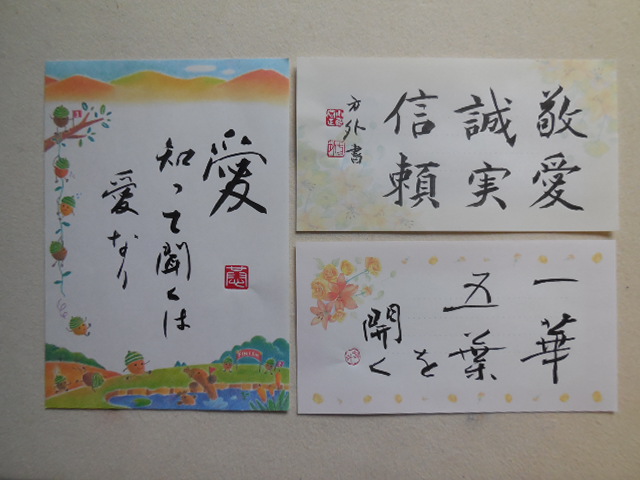 愛
知って聞くは
愛なり
敬愛
誠実
信頼
方外書
一華
五葉を
開く